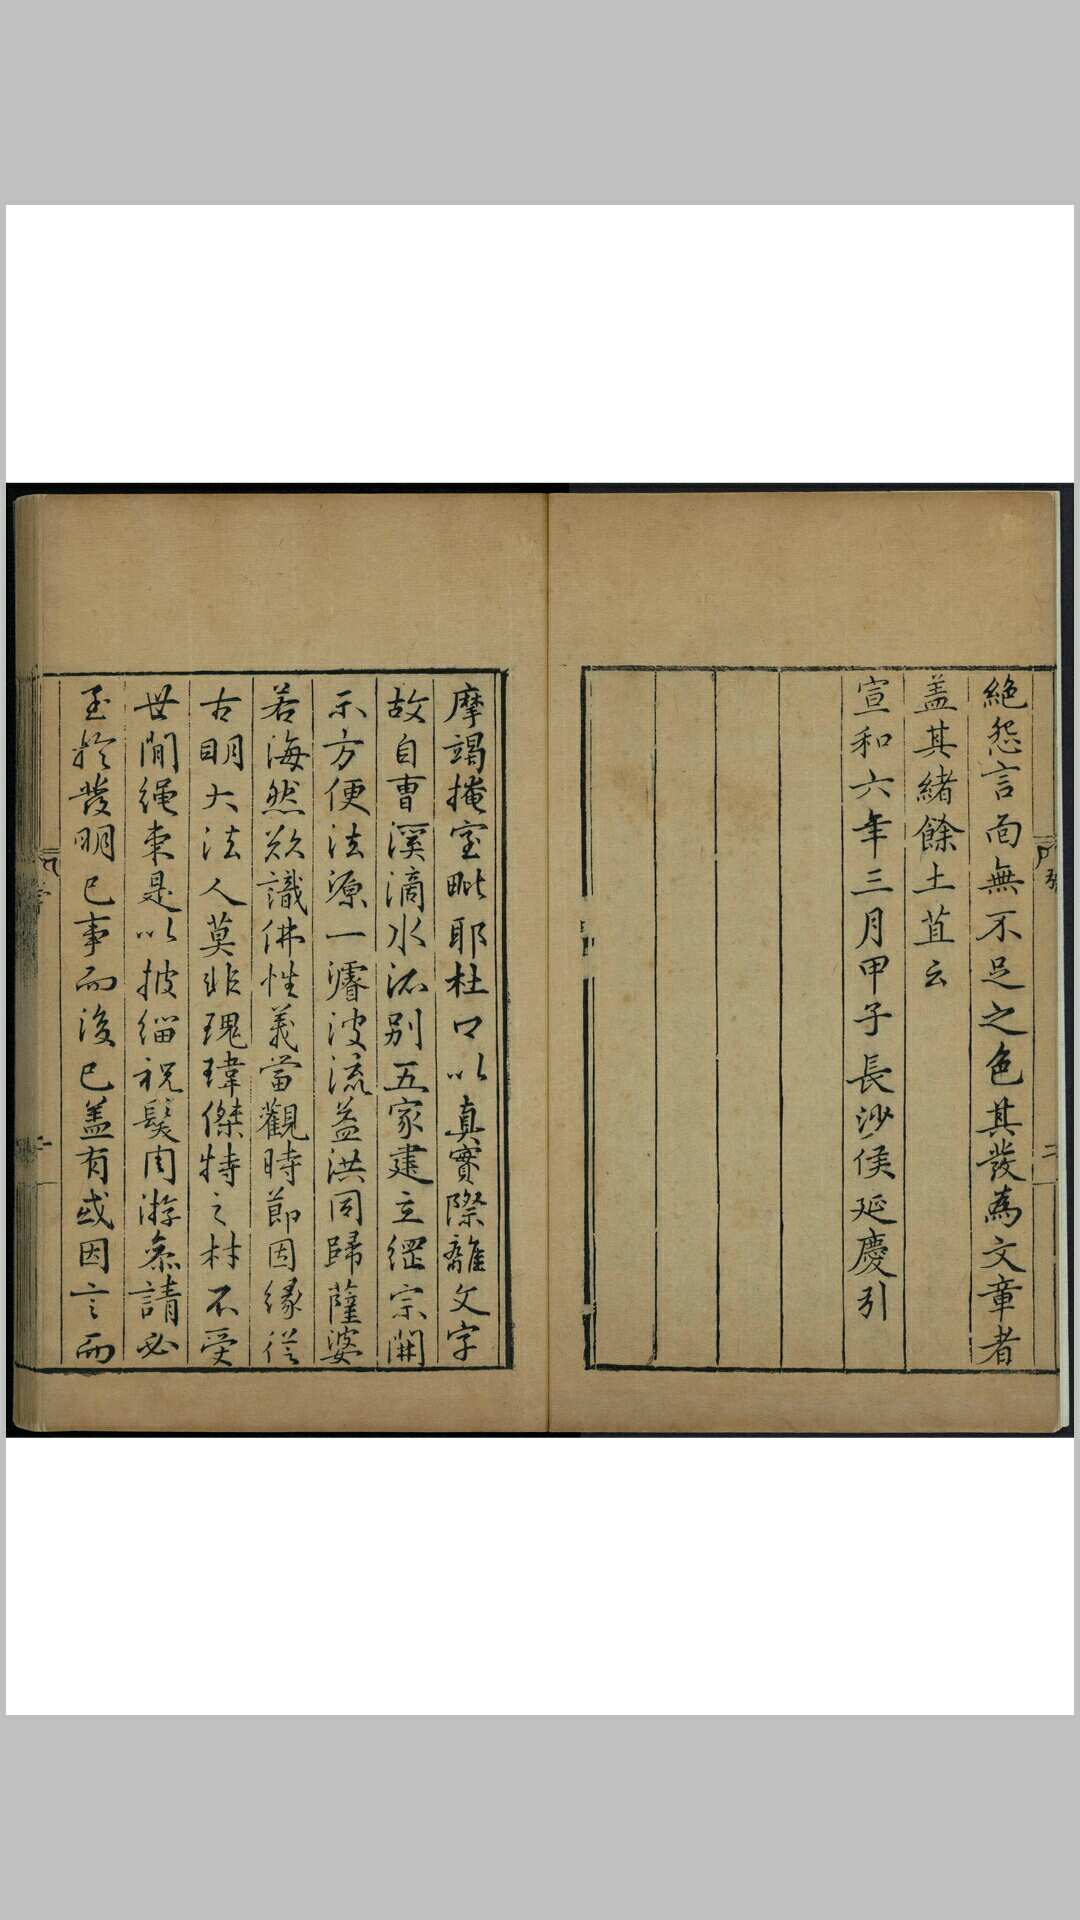 絶怨言而無不足之色其發為文章者
盖其緒餘土苴云
宣和六年三月甲子長沙侯延慶引
摩竭掩室毗耶杜口以真實際離文字
故自曹溪滴水派別五家建立綱宗開
示方便法源一濬波流益洪同歸薩婆
若海然欲識佛性義當觀時節因緣從
古明大法人莫非瑰瑋傑特之材不受
世間繩束是以披緇祝髮周游叅請必
至於發明已事而後已盖有或因言而
二